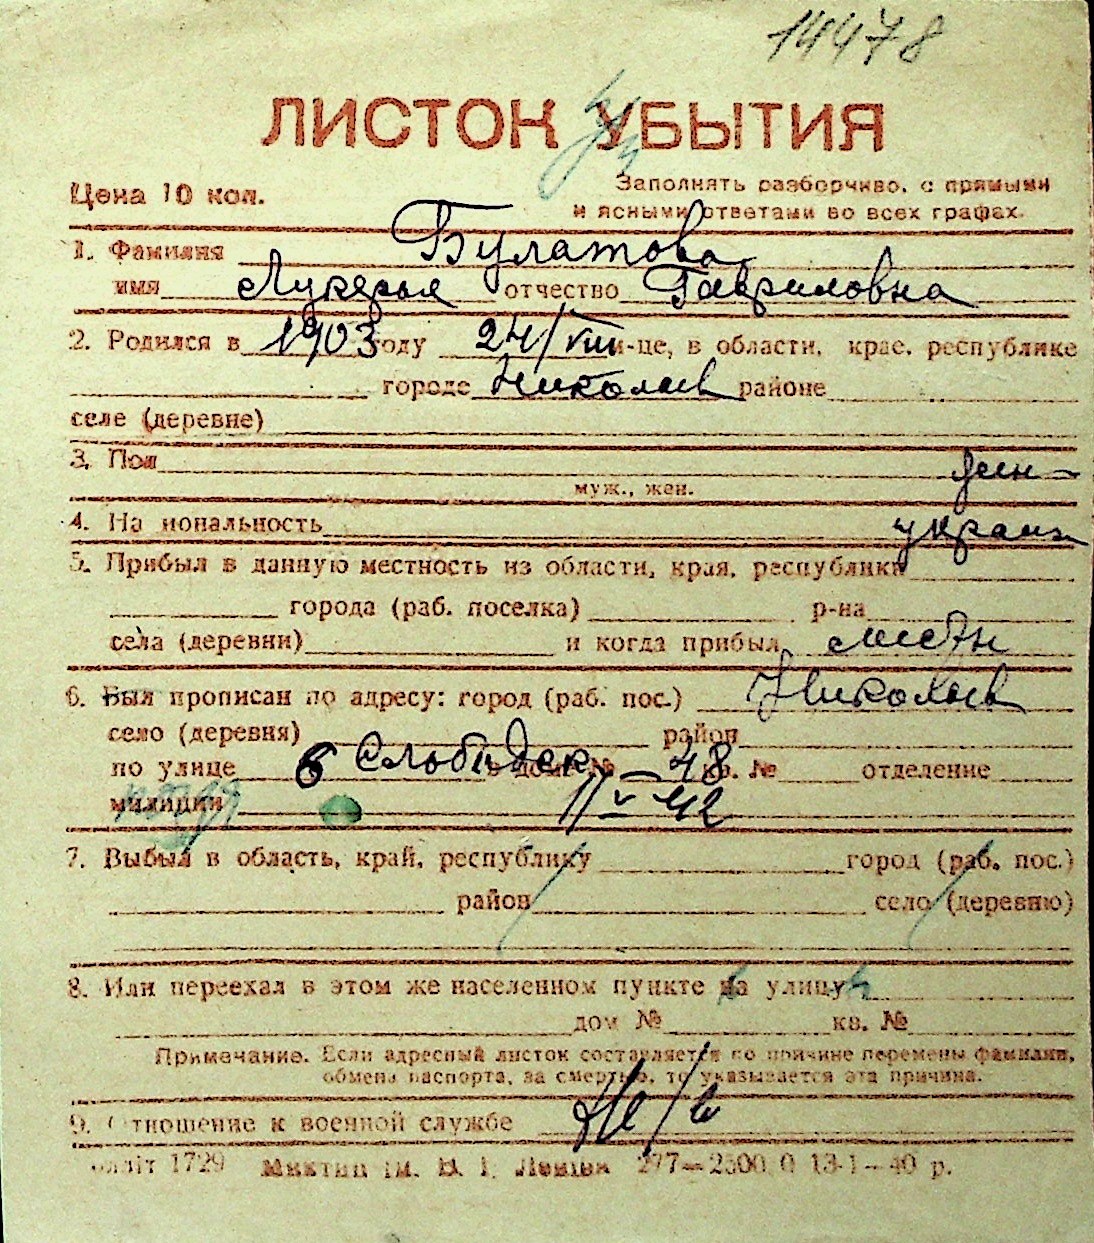 14478
ЛИСТОК УБЫТИЯ
Цена 10 коп.
Заполнять разборчиво, с прямыми
и ясными ответами во всех графах.
1. Фамилия Булатова
имя Лукерья отчество Гавриловна
2. Родился в 1903 году 24/VIII м-це, в области, крае, республике
городе Николаев районе
селе (деревне)
3. Пол жен
муж., жен.
4. Национальность украин
5. Прибыл в данную местность из области, края, республики
города (раб. поселка) р-на
села (деревни) и когда прибыл местн
6. Был прописан по адресу: город (раб. пос.) Николаев
село (деревня) район
по улице 6 Слободск дом № 48 кв. № отделение
милиции 11/V-42
7. Выбыл в область, край, республику город (раб. пос.)
район село (деревню)
8. Или переехал в этом же населенном пункте на улицу
дом № кв. №
Примечание. Если адресный листок составляется по причине перемены фамилии,
обмена паспорта, за смертью, то указывается эта причина.
9. Отношение к военной службе не/в
1729 ім. В. І. Леніна 277—2500.0 13-1—40 р.